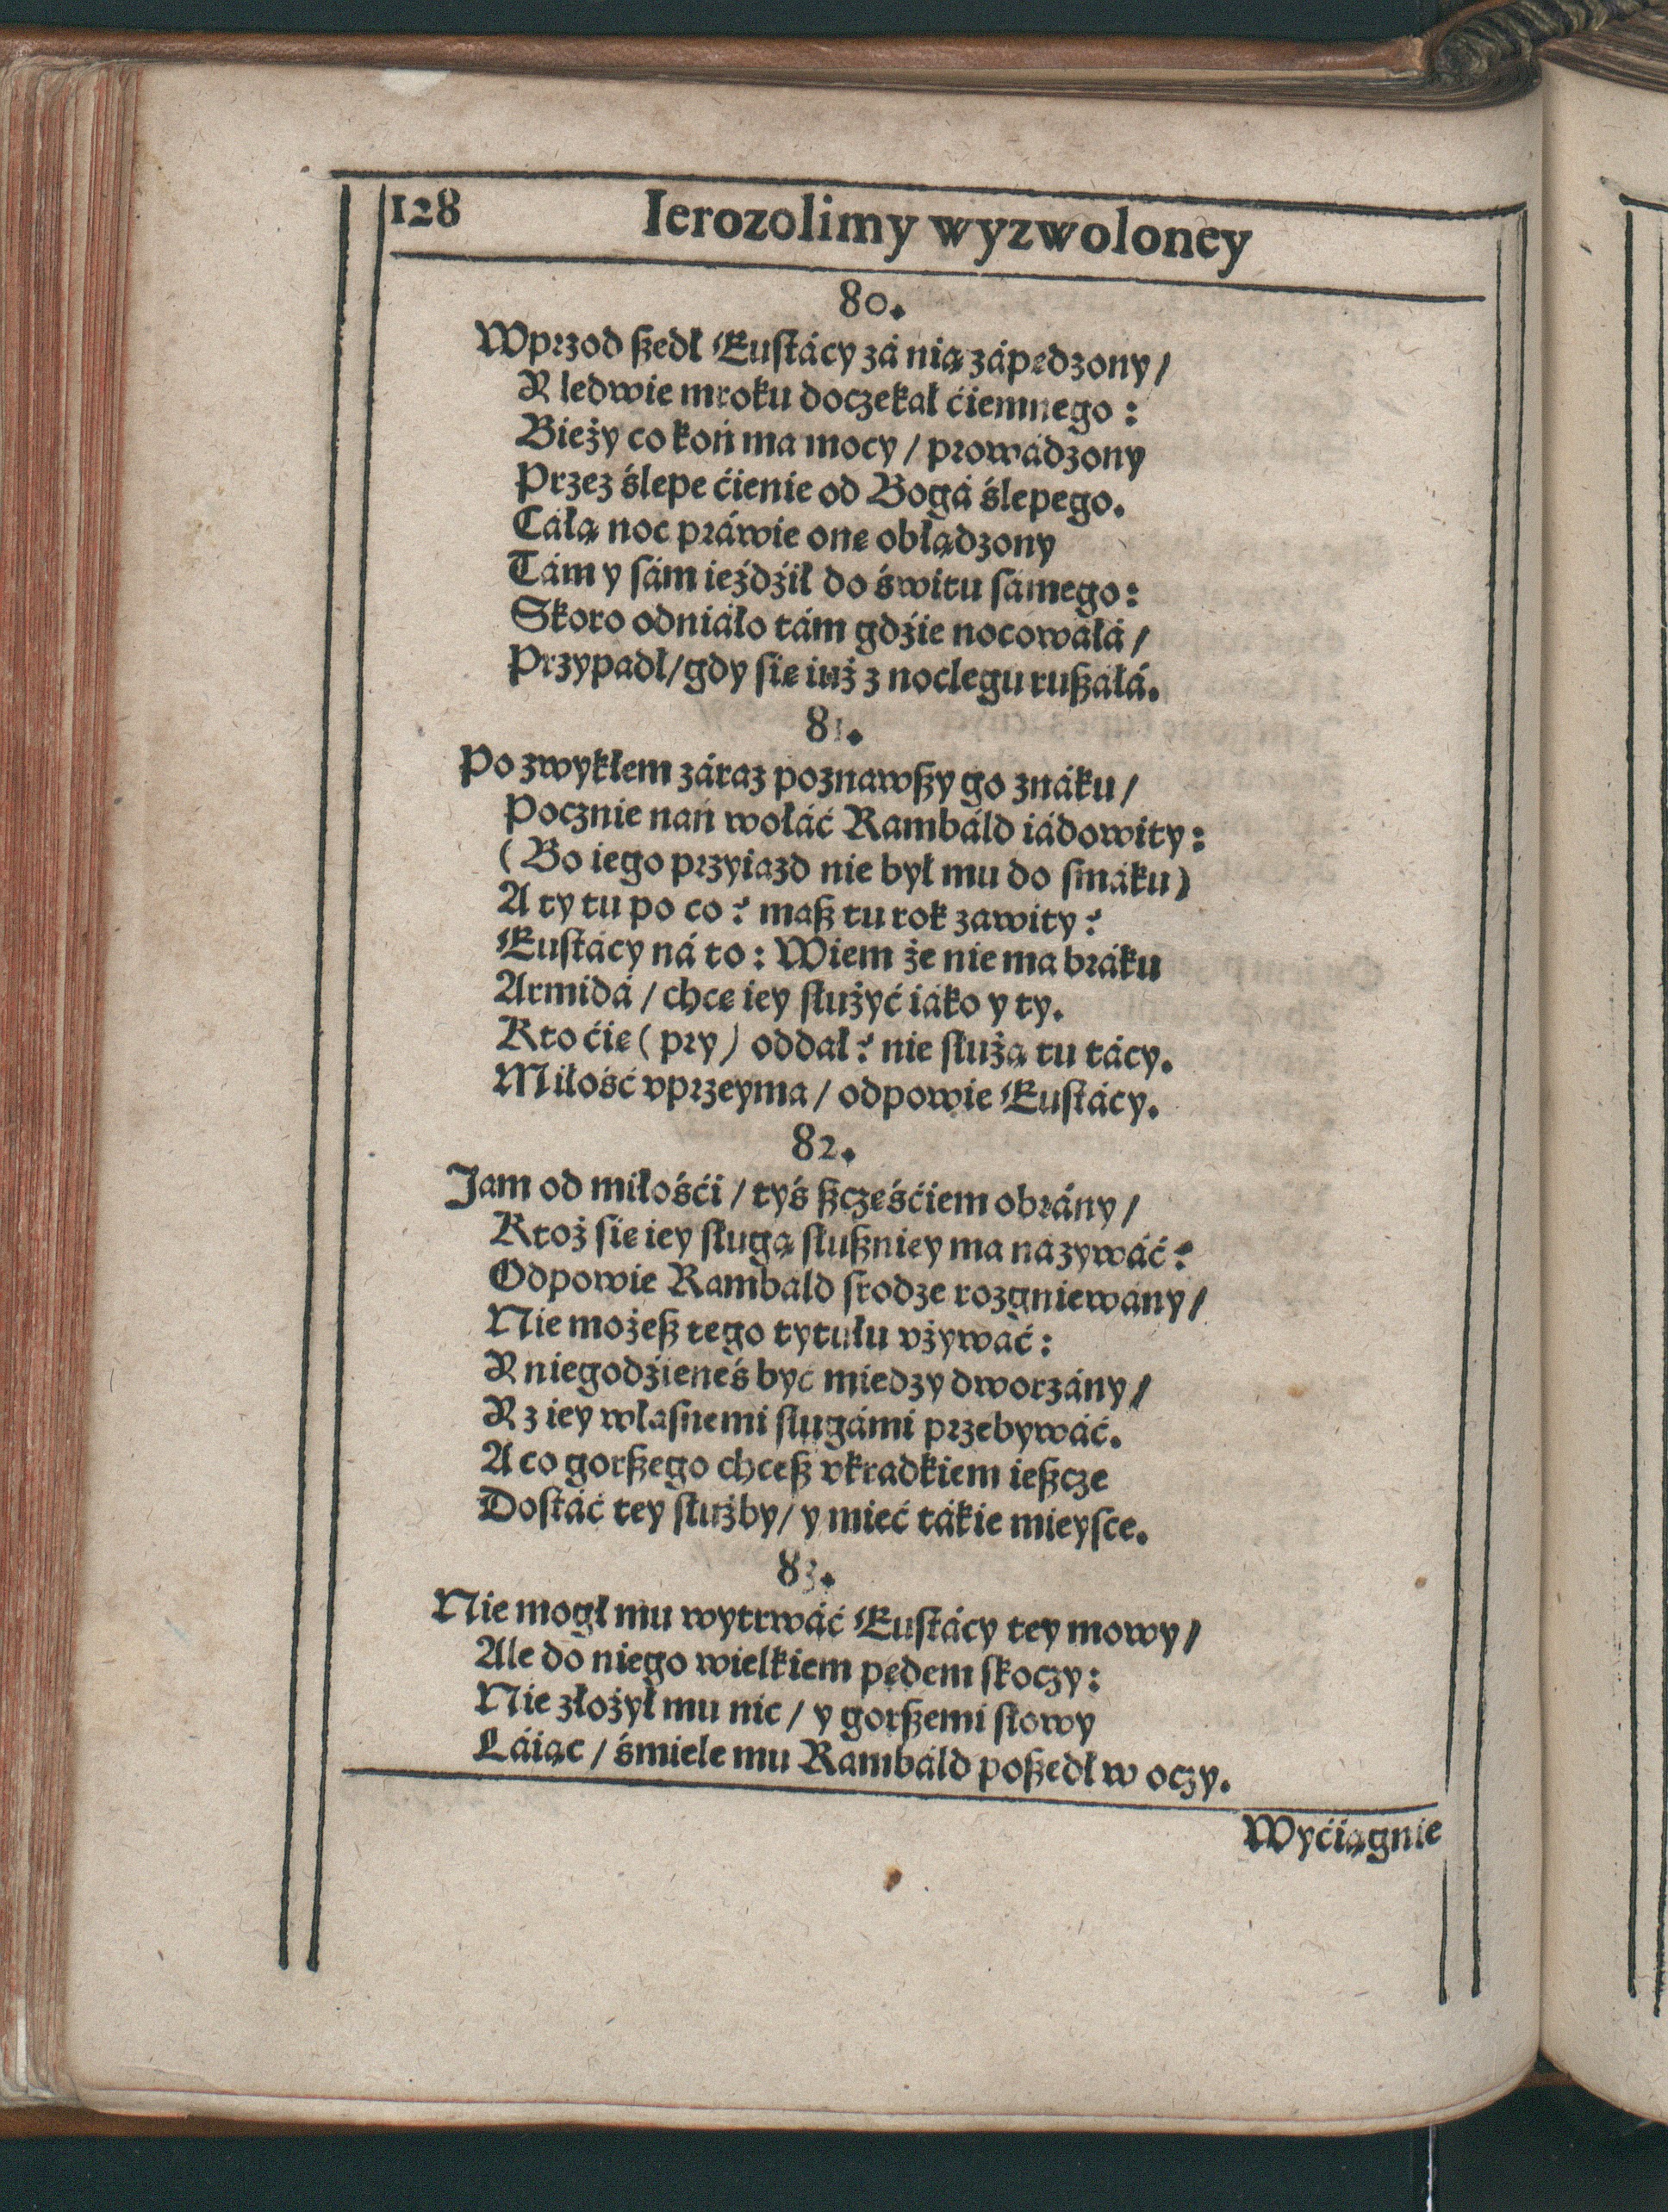 128 Ierozolimy wyzwoloney
80.
Wprzod ſzedł Euſtácy zá nią zápędzony/
Y ledwie mroku doczekał ćiemnego:
Bieży co koń ma mocy/ prowádzony
Przez ślepe ćienie od Bogá ślepego.
Całą noc práwie onę obłądzony
Tám y ſám ieźdźił do świtu ſámego:
Skoro odniáło tám gdźie nocowáłá/
Przypadł/ gdy ſię iuż z noclegu ruſzáłá.
81.
Po zwykłem záraz poznawſzy go znáku/
Pocznie nań wołáć Rambáld iádowity:
(Bo iego przyiazd nie był mu do ſmáku)
A ty tu po co? maſz tu rok zawity?
Euſtácy ná to: Wiem że nie ma bráku
Armidá/ chcę iey ſłużyć iáko y ty.
Kto ćię (pry) oddał? nie ſłużą tu tácy.
Miłość vprzeyma/ odpowie Euſtácy.
82.
Jam od miłośći/ tyś ſzczęśćiem obrány/
Ktoż ſię iey ſługą ſłuſzniey ma názywáć?
Odpowie Rambáld ſrodze rozgniewány/
Nie możeſz tego tytułu vżywáć:
Y niegodźieneś być miedzy dworzány/
Y z iey włáſnemi ſługámi przebywáć.
A co gorſzego chceſz vkradkiem ieſzcze
Doſtáć tey ſłużby/ y mieć tákie mieyſce.
83.
Nie mogł mu wytrwáć Euſtácy tey mowy/
Ale do niego wielkiem pędem ſkoczy:
Nie złożył mu nic/ y gorſzemi ſłowy
Łáiąc/ śmiele mu Rambáld poſzedł w oczy.
Wyćiągnie